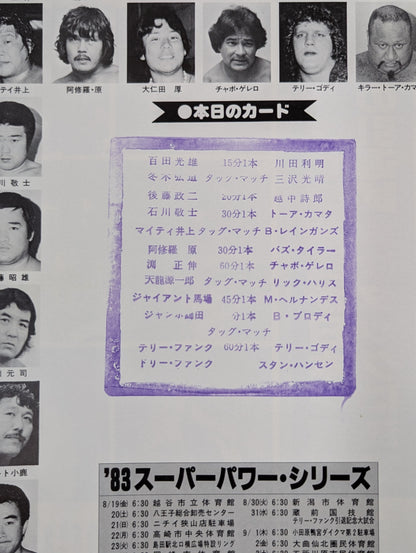 テイ井上
阿修羅・原
大仁田 厚
チャボ・ゲレロ
テリー・ゴディ
キラー・トーア・カマ
●本日のカード
川敬士
百田光雄 15分1本 川田利明
冬木弘道 タッグ・マッチ 三沢光晴
後藤政二 20分1本 越中詩郎
石川敬士 30分1本 トーア・カマタ
マイティ井上 タッグ・マッチ B・レインガンズ
阿修羅 原 30分1本 バズ・タイラー
渕 正伸 60分1本 チャボ・ゲレロ
天龍源一郎 タッグ・マッチ リック・ハリス
ジャイアント馬場 45分1本 M・ヘルナンデス
ジャンボ鶴田 分1本 B・ブロディ
タッグ・マッチ
テリー・ファンク 60分1本 テリー・ゴディ
ドリー・ファンク スタン・ハンセン
藤昭雄
元司
ト小鹿
'83スーパーパワー・シリーズ
8/19(金) 6:30 越谷市立体育館
20(土) 6:30 八王子総合卸売センター
21(日) 6:30 ニチイ狭山店駐車場
22(月) 6:30 高崎市中央体育館
23(火) 6:30
8/30(火) 6:30 新潟市体育館
31(水) 6:30 蔵前国技館
テリー・ファンク引退記念大試合
9/1(木) 6:30 小田原鴨宮ダイクマ第2駐車場
2(金) 6:30 大曲仙北圏民体育館